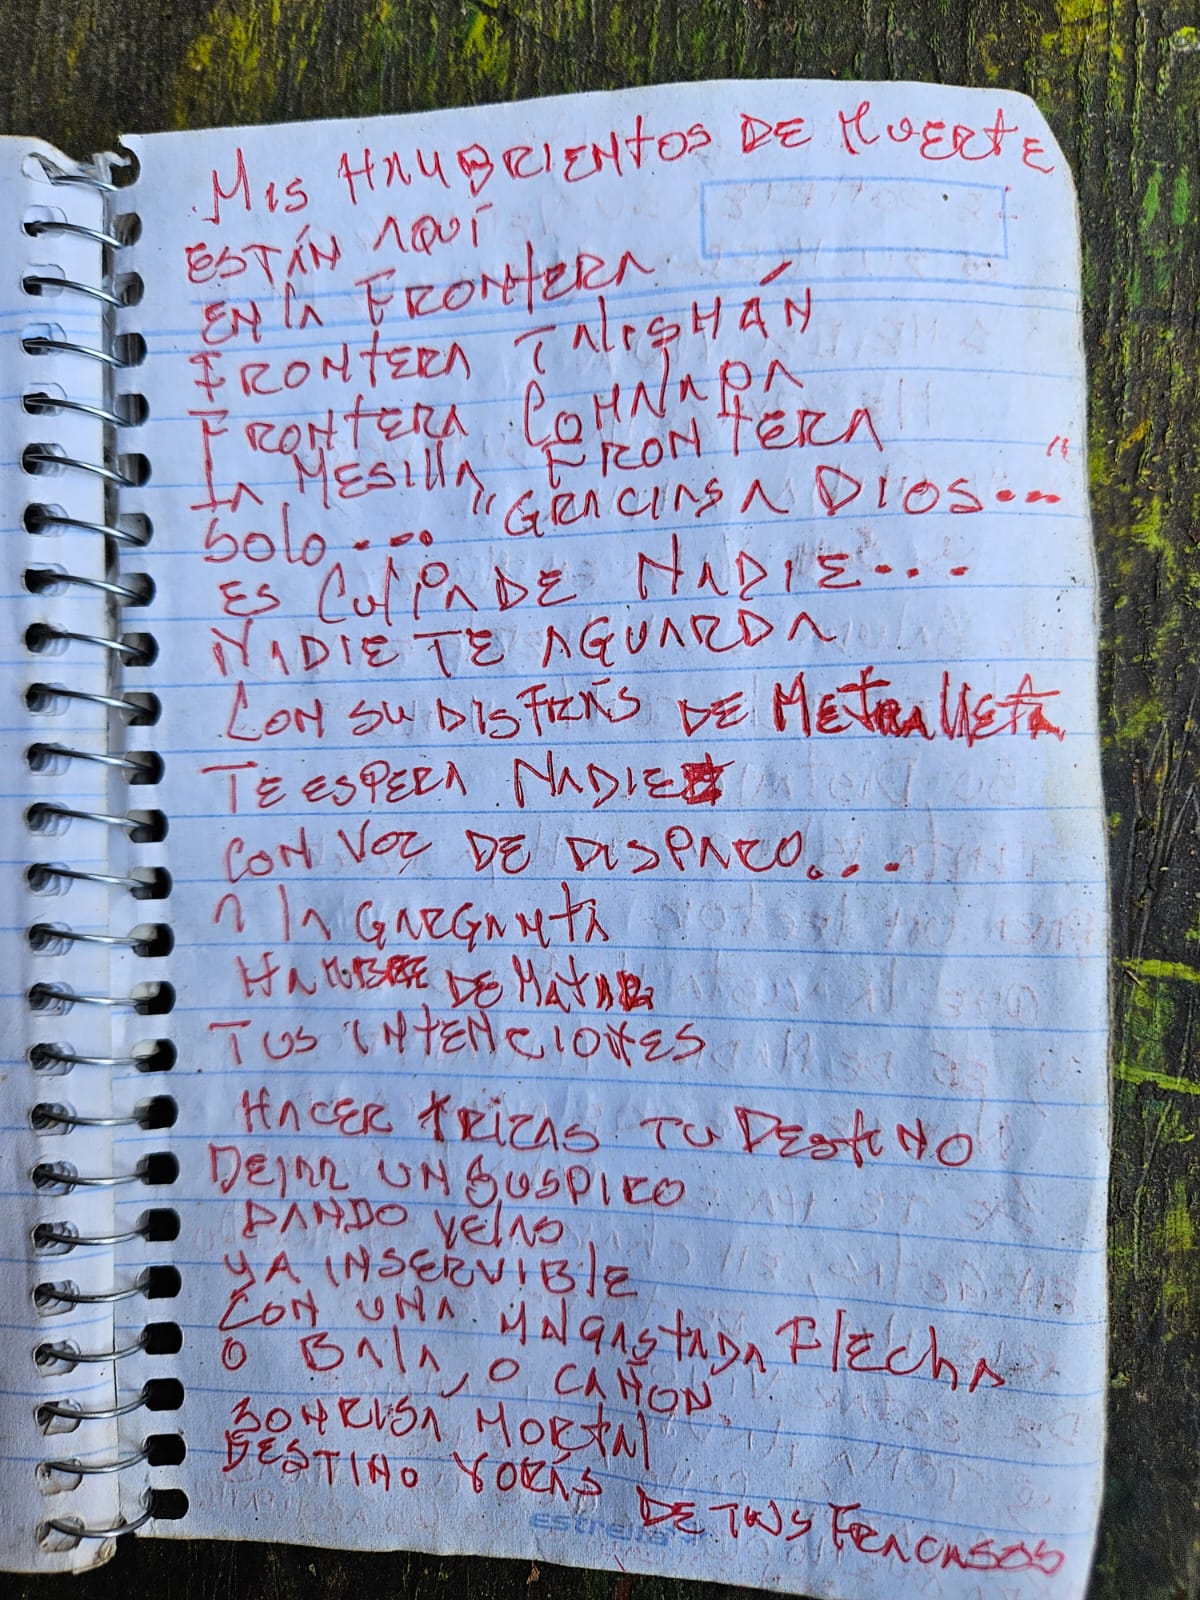 MIS HAMBRIENTOS DE MUERTE
ESTÁN AQUÍ
EN lA FRONTERA
FRONTERA TAlISMÁN
FRONTERA COMAlAPA
lA MESIllA FRONTERA
SOlO... "GRACIAS A DIOS..."
ES CUlPA DE NADIE...
NADIE TE AGUARDA
CON SU DISFRÁS DE METRAllETA
TE ESPERA NADIE
CON VOZ DE DISPARO...
A lA GARGANTA
HAMBRE DE MATAR
TUS INTENCIONES
HACER TRIZAS TU DESTINO
DEJAR UN SUSPIRO
DANDO VElAS
YA INSERVIBlE
CON UNA MAlGASTADA FlEChA
O BAlA, O CAÑON
SONRISA MORTAl
DESTINO VORÁS
DE TUS FRACASOS
estrella